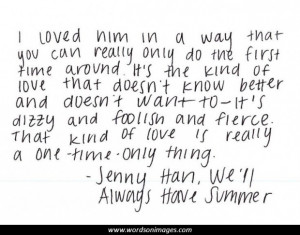 I loved him in a way that
you can really only do the first
time around. It's the kind of
love that doesn't know better
and doesn't want to-it's
dizzy and foolish and fierce.
That kind of love is really
a one-time-only thing.
- Jenny Han, We'll
Always Have Summer
www.wordsonimages.com